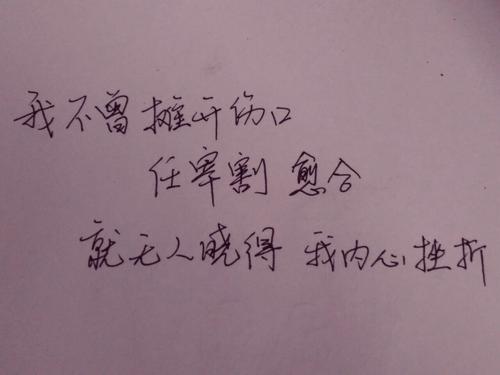 我不曾摊开伤口
任宰割 愈合
就无人晓得 我内心挫折